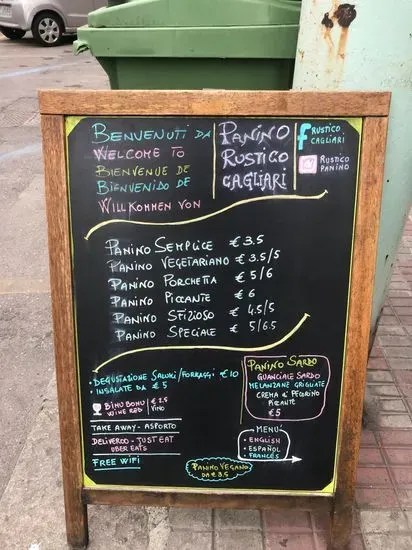 BENVENUTI DA
WELCOME TO
BIENVENUE DE
BIENVENIDO DE
WILLKOMMEN VON
PANINO
RUSTICO
CAGLIARI
f RUSTICO
CAGLIARI
RUSTICO
PANINO
PANINO SEMPLICE € 3.5
PANINO VEGETARIANO € 3.5/5
PANINO PORCHETTA € 5/6
PANINO PICCANTE € 6
PANINO SFIZIOSO € 4.5/5
PANINO SPECIALE € 5/6.5
• DEGUSTAZIONE SALUMI/FORMAGGI €10
• INSALATE DA € 5
BINU BONU € 2.5
WINE RED VINO
TAKE AWAY - ASPORTO
DELIVEROO - JUST EAT
UBER EATS
FREE WIFI
PANINO SARDO
GUANCIALE SARDO
MELANZANE GRIGLIATE
CREMA di PECORINO
PICCANTE
€5
MENÚ
• ENGLISH
• ESPAÑOL
• FRANCÉS
PANINO VEGANO
DA € 3.5